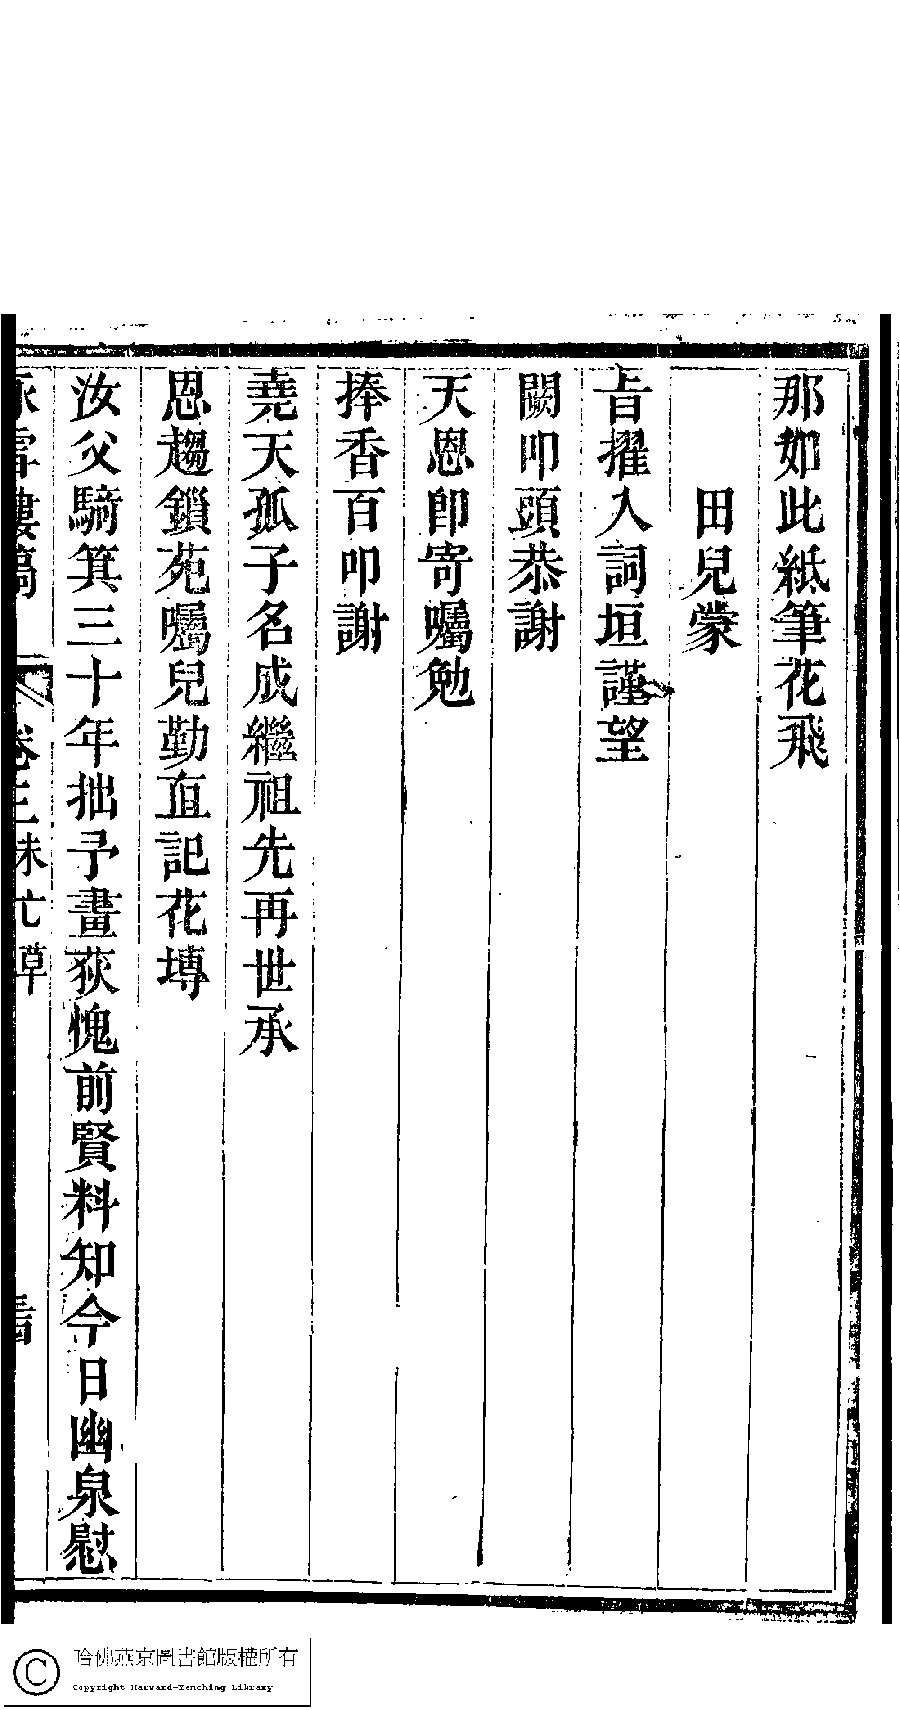 那如此紙筆花飛
田兒蒙
旨擢入詞垣謹望
闕叩頭恭謝
天恩卽寄囑勉
捧香百叩謝
堯天孤子名成繼祖先再世承
恩趨鎖苑囑兒勤直記花塼
汝父騎箕三十年拙予畫荻愧前賢料知今日幽泉慰
卷三未亡草
哈佛燕京圖書館版權所有
Copyright Harvard-Yenching Library